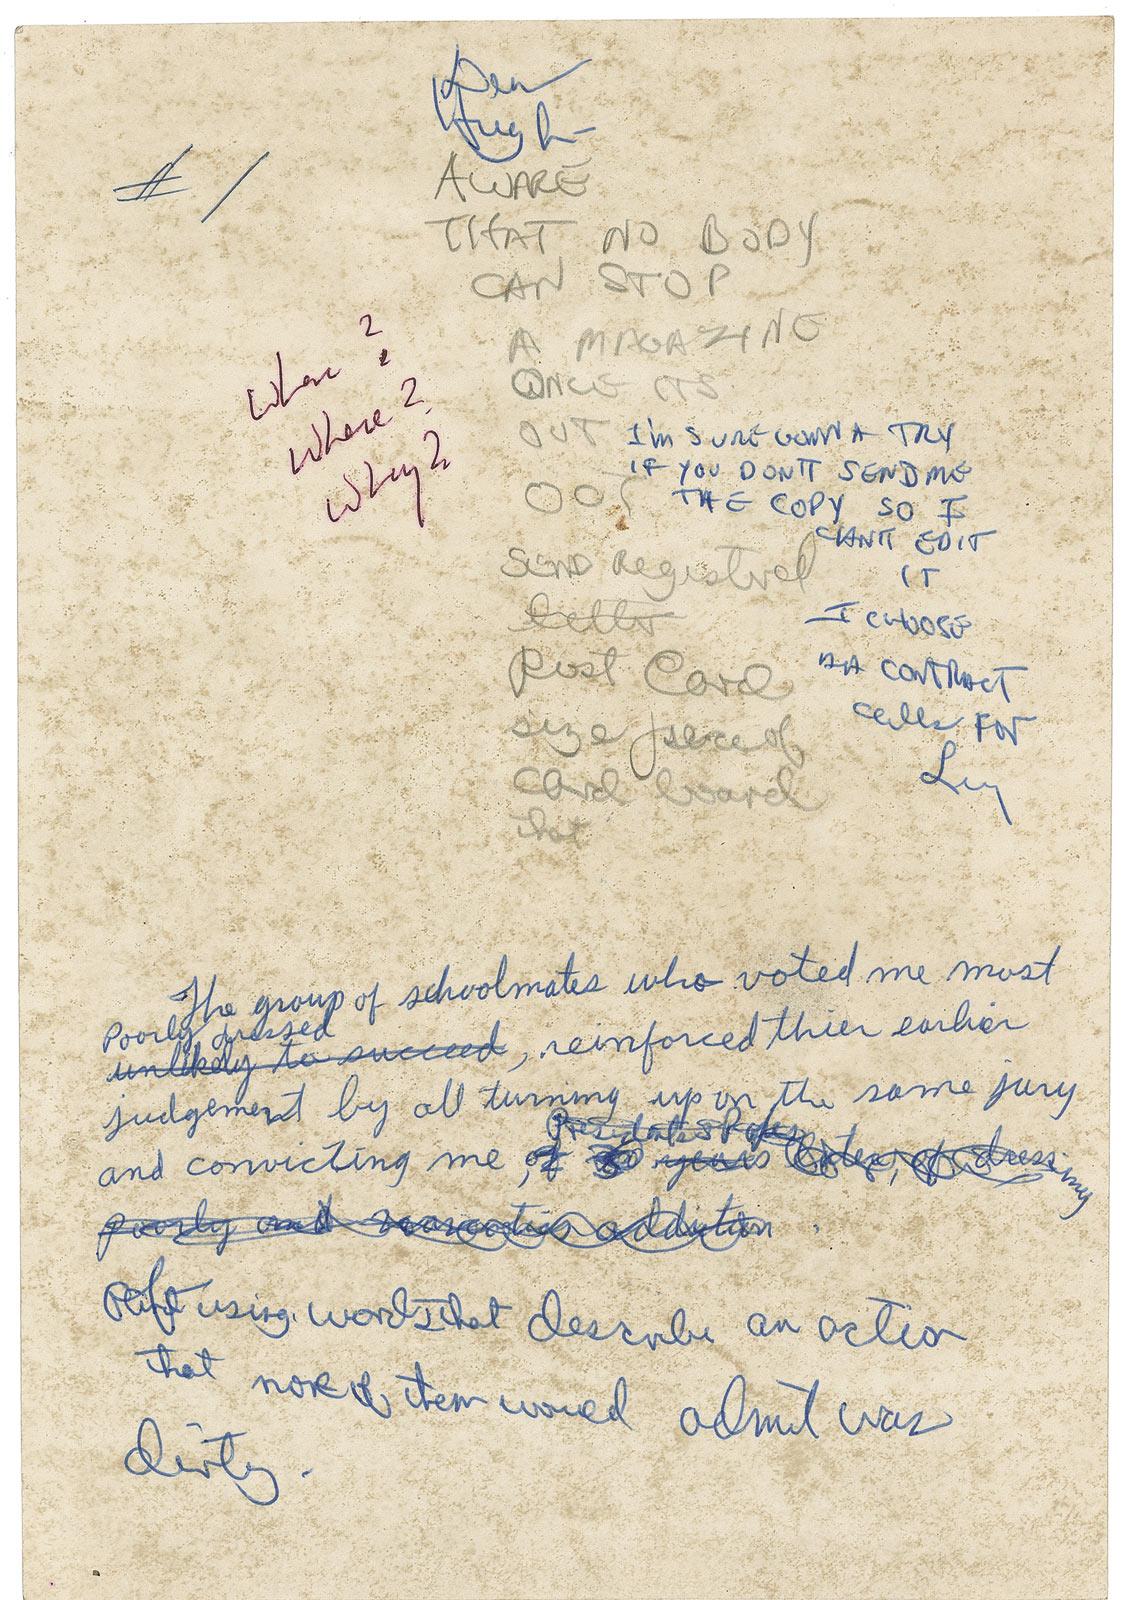 Dear
Hugh-
# 1
AWARE
THAT NO BODY
CAN STOP
A MAGAZINE
ONCE ITS
OUT
When?
Where?
Why?
I'M SURE GONNA TRY
IF YOU DON'T SEND ME
THE COPY SO I
CAN'T EDIT
IT
I CHOOSE
CONTRACT
calls FOR
SEND Registred
letter
Post Card
size piece of
card board
that
The group of schoolmates who voted me most
Poorly dressed
unlikely to succeed, reinforced thier earlier
judgement by all turning up on the same jury
and convicting me, of years dressing
poorly and addiction.
using words that describe an action
that none of them would admit was
dirty.